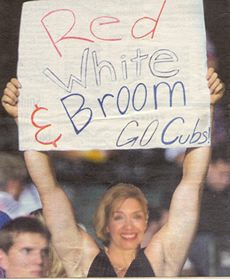 Red
White
& Broom
GO Cubs!